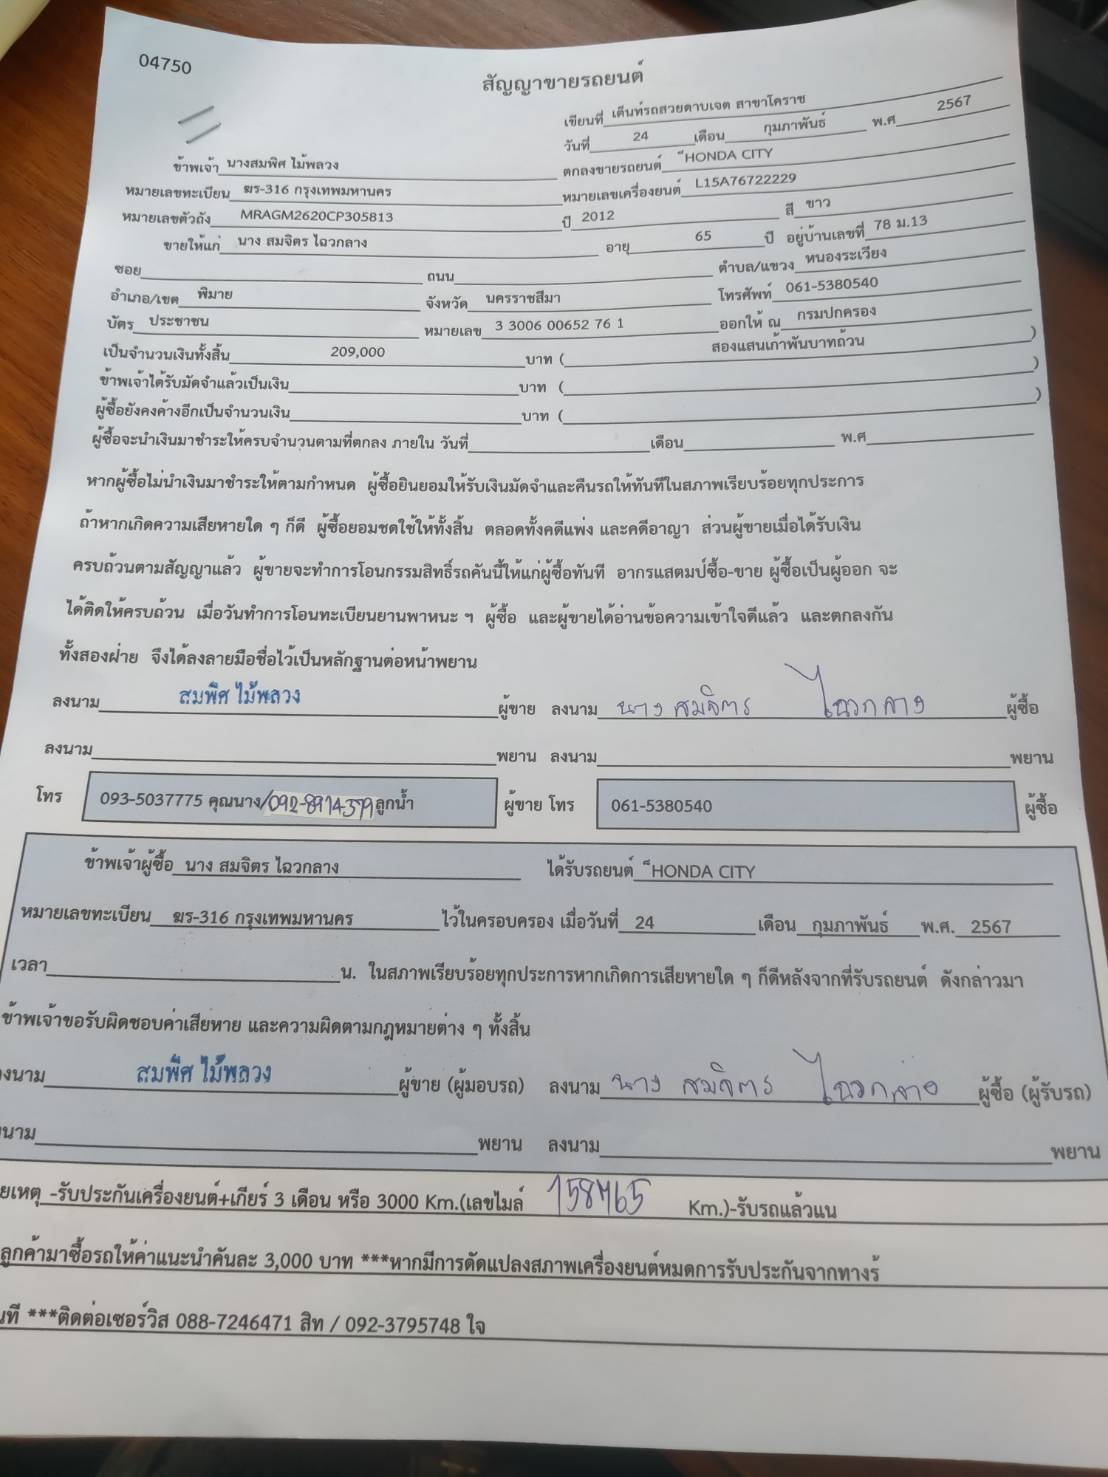 04750
สัญญาขายรถยนต์
เขียนที่ เต็นท์รถสวยดาบเจต สาขาโคราช
วันที่ 24 เดือน กุมภาพันธ์ พ.ศ 2567
ข้าพเจ้า นางสมพิศ ไม้พลวง ตกลงขายรถยนต์ ็HONDA CITY
หมายเลขทะเบียน ฆร-316 กรุงเทพมหานคร หมายเลขเครื่องยนต์ L15A76722229
หมายเลขตัวถัง MRAGM2620CP305813 ปี 2012 สี ขาว
ขายให้แก่ นาง สมจิตร ไฉวกลาง อายุ 65 ปี อยู่บ้านเลขที่ 78 ม.13
ซอย ถนน ตำบล/แขวง หนองระเวียง
อำเภอ/เขต พิมาย จังหวัด นครราชสีมา โทรศัพท์ 061-5380540
บัตร ประชาชน หมายเลข 3 3006 00652 76 1 ออกให้ ณ กรมปกครอง
เป็นจำนวนเงินทั้งสิ้น 209,000 บาท ( สองแสนเก้าพันบาทถ้วน )
ข้าพเจ้าได้รับมัดจำแล้วเป็นเงิน บาท ( )
ผู้ซื้อยังคงค้างอีกเป็นจำนวนเงิน บาท ( )
ผู้ซื้อจะนำเงินมาชำระให้ครบจำนวนตามที่ตกลง ภายใน วันที่ เดือน พ.ศ
หากผู้ซื้อไม่นำเงินมาชำระให้ตามกำหนด ผู้ซื้อยินยอมให้รับเงินมัดจำและคืนรถให้ทันทีในสภาพเรียบร้อยทุกประการ
ถ้าหากเกิดความเสียหายใด ๆ ก็ดี ผู้ซื้อยอมชดใช้ให้ทั้งสิ้น ตลอดทั้งคดีแพ่ง และคดีอาญา ส่วนผู้ขายเมื่อได้รับเงิน
ครบถ้วนตามสัญญาแล้ว ผู้ขายจะทำการโอนกรรมสิทธิ์รถคันนี้ให้แก่ผู้ซื้อทันที อากรแสตมป์ซื้อ-ขาย ผู้ซื้อเป็นผู้ออก จะ
ได้ติดให้ครบถ้วน เมื่อวันทำการโอนทะเบียนยานพาหนะ ฯ ผู้ซื้อ และผู้ขายได้อ่านข้อความเข้าใจดีแล้ว และตกลงกัน
ทั้งสองฝ่าย จึงได้ลงลายมือชื่อไว้เป็นหลักฐานต่อหน้าพยาน
ลงนาม สมพิศ ไม้พลวง ผู้ขาย ลงนาม นาง สมจิตร ไฉวกลาง ผู้ซื้อ
ลงนาม พยาน ลงนาม พยาน
โทร 093-5037775 คุณนาง/092-8974379 ลูกน้ำ ผู้ขาย โทร 061-5380540 ผู้ซื้อ
ข้าพเจ้าผู้ซื้อ นาง สมจิตร ไฉวกลาง ได้รับรถยนต์ ็HONDA CITY
หมายเลขทะเบียน ฆร-316 กรุงเทพมหานคร ไว้ในครอบครอง เมื่อวันที่ 24 เดือน กุมภาพันธ์ พ.ศ. 2567
เวลา น. ในสภาพเรียบร้อยทุกประการหากเกิดการเสียหายใด ๆ ก็ดีหลังจากที่รับรถยนต์ ดังกล่าวมา
ข้าพเจ้าขอรับผิดชอบค่าเสียหาย และความผิดตามกฎหมายต่าง ๆ ทั้งสิ้น
งนาม สมพิศ ไม้พลวง ผู้ขาย (ผู้มอบรถ) ลงนาม นาง สมจิตร ไฉวกลาง ผู้ซื้อ (ผู้รับรถ)
นาม พยาน ลงนาม พยาน
ยเหตุ -รับประกันเครื่องยนต์+เกียร์ 3 เดือน หรือ 3000 Km.(เลขไมล์ 158465 Km.)-รับรถแล้วแน
ลูกค้ามาซื้อรถให้ค่าแนะนำคันละ 3,000 บาท ***หากมีการดัดแปลงสภาพเครื่องยนต์หมดการรับประกันจากทางร้
นที ***ติดต่อเซอร์วิส 088-7246471 สิท / 092-3795748 ใจ